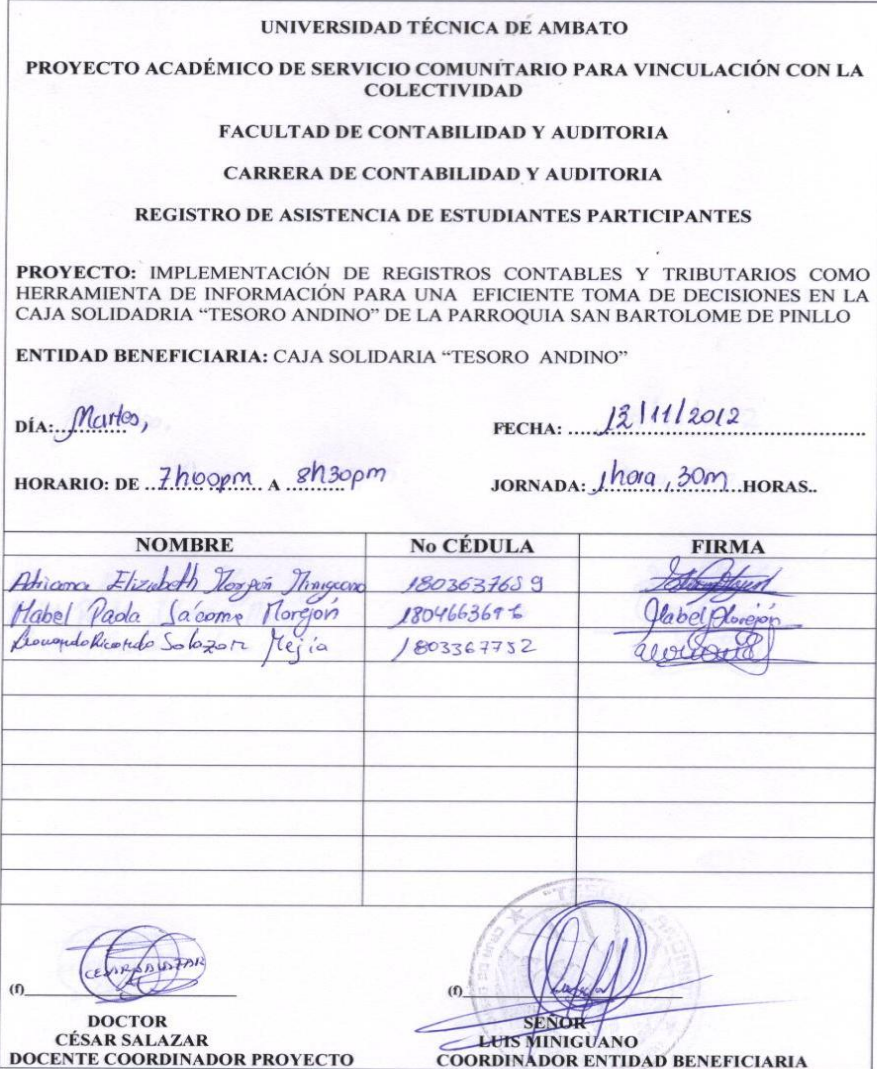 UNIVERSIDAD TÉCNICA DE AMBATO
PROYECTO ACADÉMICO DE SERVICIO COMUNITARIO PARA VINCULACIÓN CON LA
COLECTIVIDAD
FACULTAD DE CONTABILIDAD Y AUDITORIA
CARRERA DE CONTABILIDAD Y AUDITORIA
REGISTRO DE ASISTENCIA DE ESTUDIANTES PARTICIPANTES
PROYECTO: IMPLEMENTACIÓN DE REGISTROS CONTABLES Y TRIBUTARIOS COMO
HERRAMIENTA DE INFORMACIÓN PARA UNA EFICIENTE TOMA DE DECISIONES EN LA
CAJA SOLIDADRIA “TESORO ANDINO” DE LA PARROQUIA SAN BARTOLOME DE PINLLO
ENTIDAD BENEFICIARIA: CAJA SOLIDARIA “TESORO ANDINO”
DÍA: Martes, FECHA: 13/11/2012
HORARIO: DE 7h00pm A 8h30pm JORNADA: 1hora, 30m HORAS..
NOMBRE No CÉDULA FIRMA
Adriana Elizabeth 1803637689
Mabel Paola Jácome Morejón 1804663696 Mabel Morejón
Leonardo Ricardo Salazar Mejía 1803367752
CESAR SALAZAR
(f) (f)
DOCTOR SEÑOR
CÉSAR SALAZAR LUIS MINIGUANO
DOCENTE COORDINADOR PROYECTO COORDINADOR ENTIDAD BENEFICIARIA